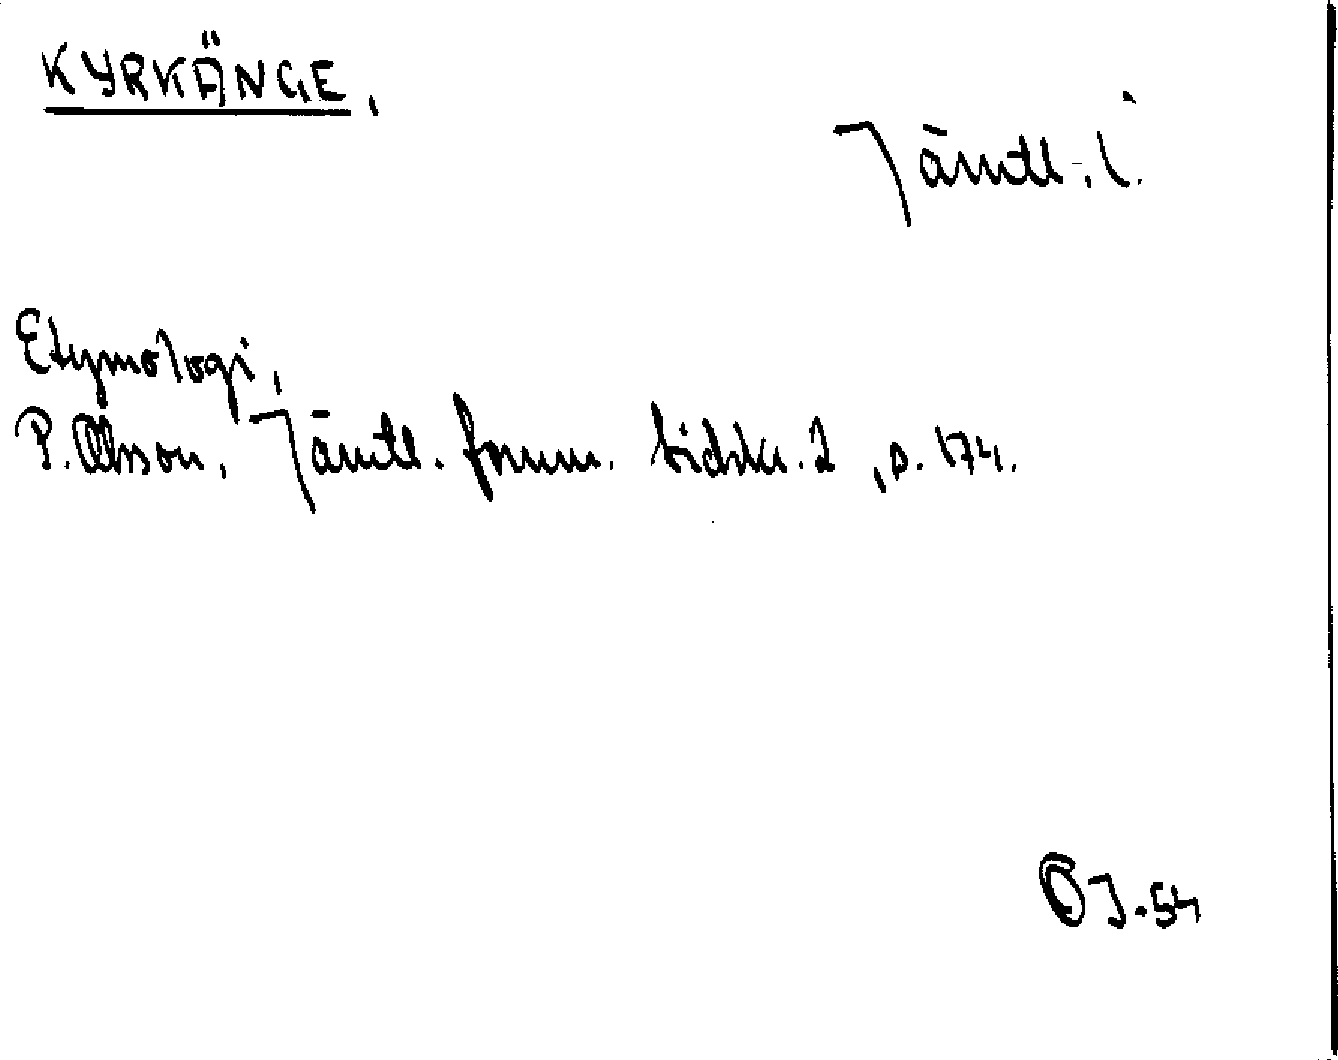 KYRKÄNGE,
Jämtl. l.
Etymologi,
P. Olsson, Jämtl. fornm. tidskr. 2, s. 174.
OJ-54